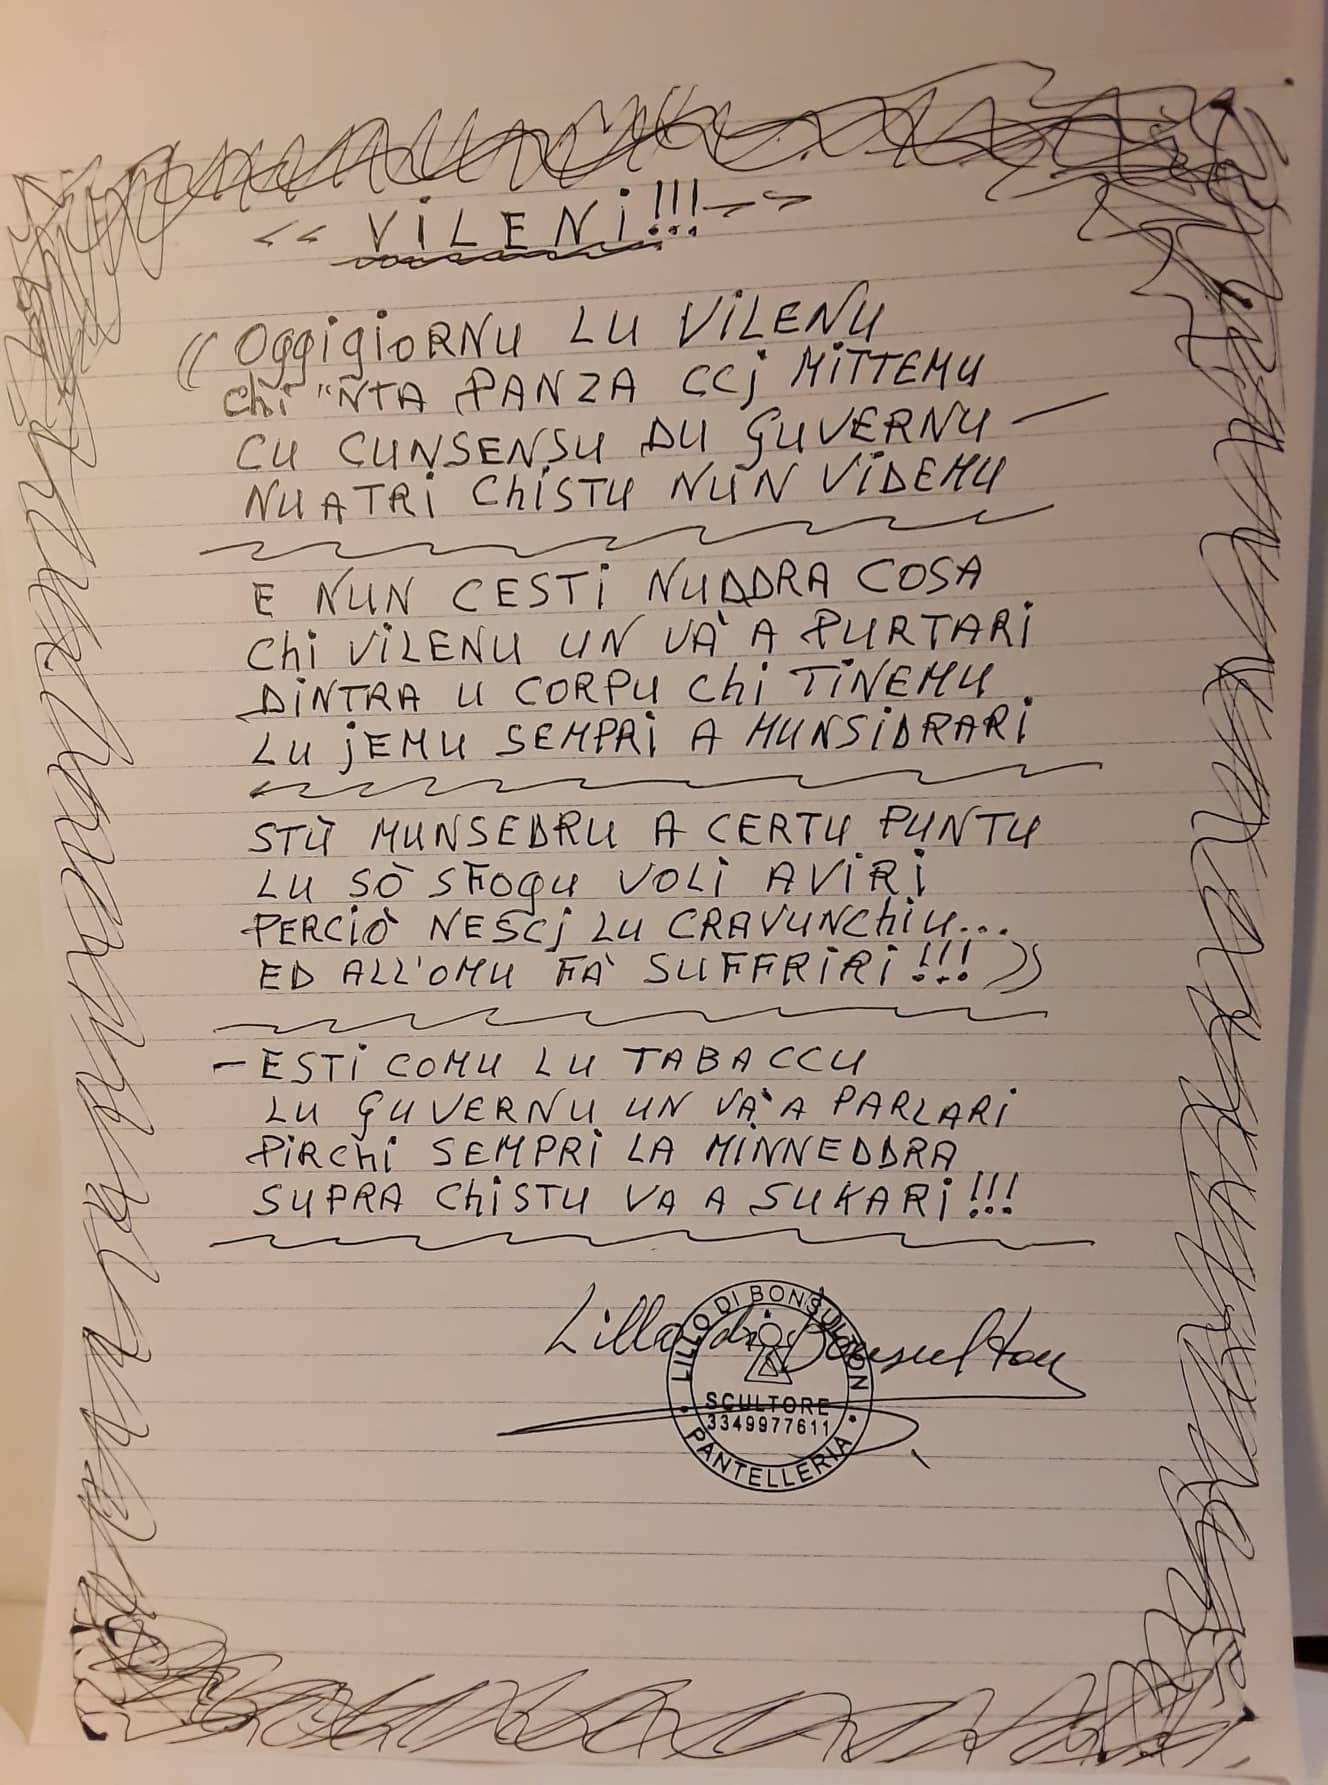 << VILENI!!! >>
(( OggigiORNU LU VILENU
Chi "NTA PANZA CCj MITTEMU
CU CUNSENSU DU GUVERNU —
NUATRI ChISTU NUN VIDEMU
E NUN CESTI NUDDRA COSA
Chi VILENU UN VA' A PURTARI
DINTRA U CORPU Chi TINEMU
LU jEMU SEMPRI A MUNSIDRARI
STÙ MUNSEDRU A CERTU PUNTU
LU SÒ SFOGU VOLI AVIRI
PERCIÒ NESCj LU CRAVUNChIU...
ED ALL'OMU FÀ SUFFRIRI!!! ))
– ESTI COMU LU TABACCU
LU GUVERNU UN VA' A PARLARI
PIRChI SEMPRI LA MINNEDDRA
SUPRA ChISTU VA A SUKARI!!!
Lillo di Bonsulton
LILLO DI BONSULTON
SCULTORE
3349977611
• PANTELLERIA •